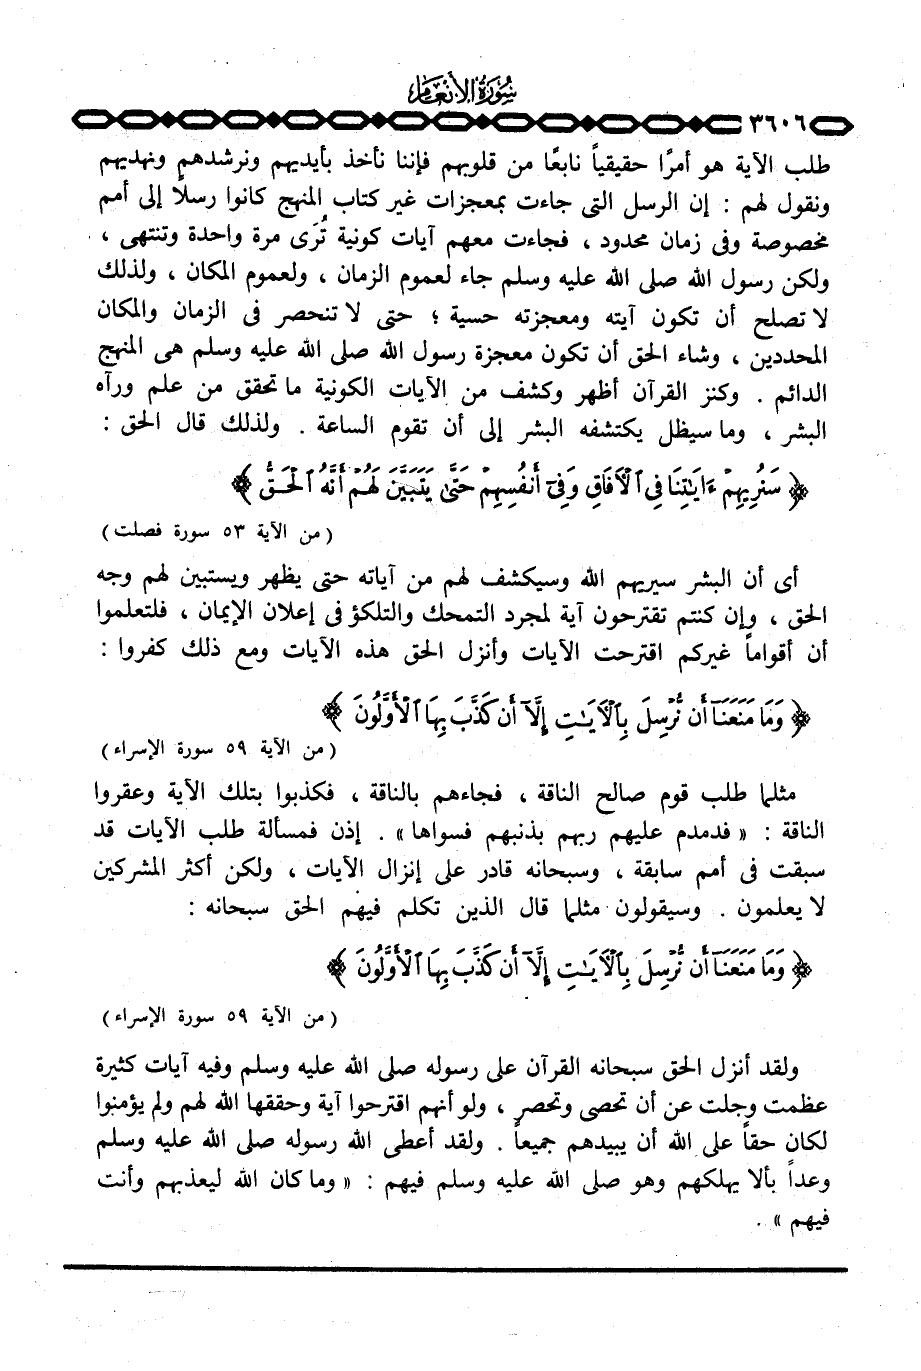 سُورَةُ الأَنْعَام
٣٦٠٦
طلب الآية هو أمرًا حقيقياً نابعًا من قلوبهم فإننا نأخذ بأيديهم ونرشدهم ونهديهم
ونقول لهم : إن الرسل التى جاءت بمعجزات غير كتاب المنهج كانوا رسلاً إلى أمم
مخصوصة وفى زمان محدود ، فجاءت معهم آيات كونية تُرَى مرة واحدة وتنتهى ،
ولكن رسول الله صلى الله عليه وسلم جاء لعموم الزمان ، ولعموم المكان ، ولذلك
لا تصلح أن تكون آيته ومعجزته حسية ؛ حتى لا تنحصر فى الزمان والمكان
المحددين ، وشاء الحق أن تكون معجزة رسول الله صلى الله عليه وسلم هى المنهج
الدائم . وكنز القرآن أظهر وكشف من الآيات الكونية ما تحقق من علم ورآه
البشر ، وما سيظل يكتشفه البشر إلى أن تقوم الساعة . ولذلك قال الحق :
﴿ سَنُرِيهِمْ ءَايَـٰتِنَا فِى ٱلْآفَاقِ وَفِىٓ أَنفُسِهِمْ حَتَّىٰ يَتَبَيَّنَ لَهُمْ أَنَّهُ ٱلْحَقُّ ﴾
( من الآية ٥٣ سورة فصلت )
أى أن البشر سيريهم الله وسيكشف لهم من آياته حتى يظهر ويستبين لهم وجه
الحق ، وإن كنتم تقترحون آية لمجرد التمحك والتلكؤ فى إعلان الإيمان ، فلتعلموا
أن أقواماً غيركم اقترحت الآيات وأنزل الحق هذه الآيات ومع ذلك كفروا :
﴿ وَمَا مَنَعَنَآ أَن نُّرْسِلَ بِٱلْآيَـٰتِ إِلَّآ أَن كَذَّبَ بِهَا ٱلْأَوَّلُونَ ﴾
( من الآية ٥٩ سورة الإسراء )
مثلما طلب قوم صالح الناقة ، فجاءهم بالناقة ، فكذبوا بتلك الآية وعقروا
الناقة : « فدمدم عليهم ربهم بذنبهم فسواها » . إذن فمسألة طلب الآيات قد
سبقت فى أمم سابقة ، وسبحانه قادر على إنزال الآيات ، ولكن أكثر المشركين
لا يعلمون . وسيقولون مثلما قال الذين تكلم فيهم الحق سبحانه :
﴿ وَمَا مَنَعَنَآ أَن نُّرْسِلَ بِٱلْآيَـٰتِ إِلَّآ أَن كَذَّبَ بِهَا ٱلْأَوَّلُونَ ﴾
( من الآية ٥٩ سورة الإسراء )
ولقد أنزل الحق سبحانه القرآن على رسوله صلى الله عليه وسلم وفيه آيات كثيرة
عظمت وجلت عن أن تحصى وتحصر ، ولو أنهم اقترحوا آية وحققها الله لهم ولم يؤمنوا
لكان حقاً على الله أن يبيدهم جميعاً . ولقد أعطى الله رسوله صلى الله عليه وسلم
وعداً بألا يهلكهم وهو صلى الله عليه وسلم فيهم : « وما كان الله ليعذبهم وأنت
فيهم » .